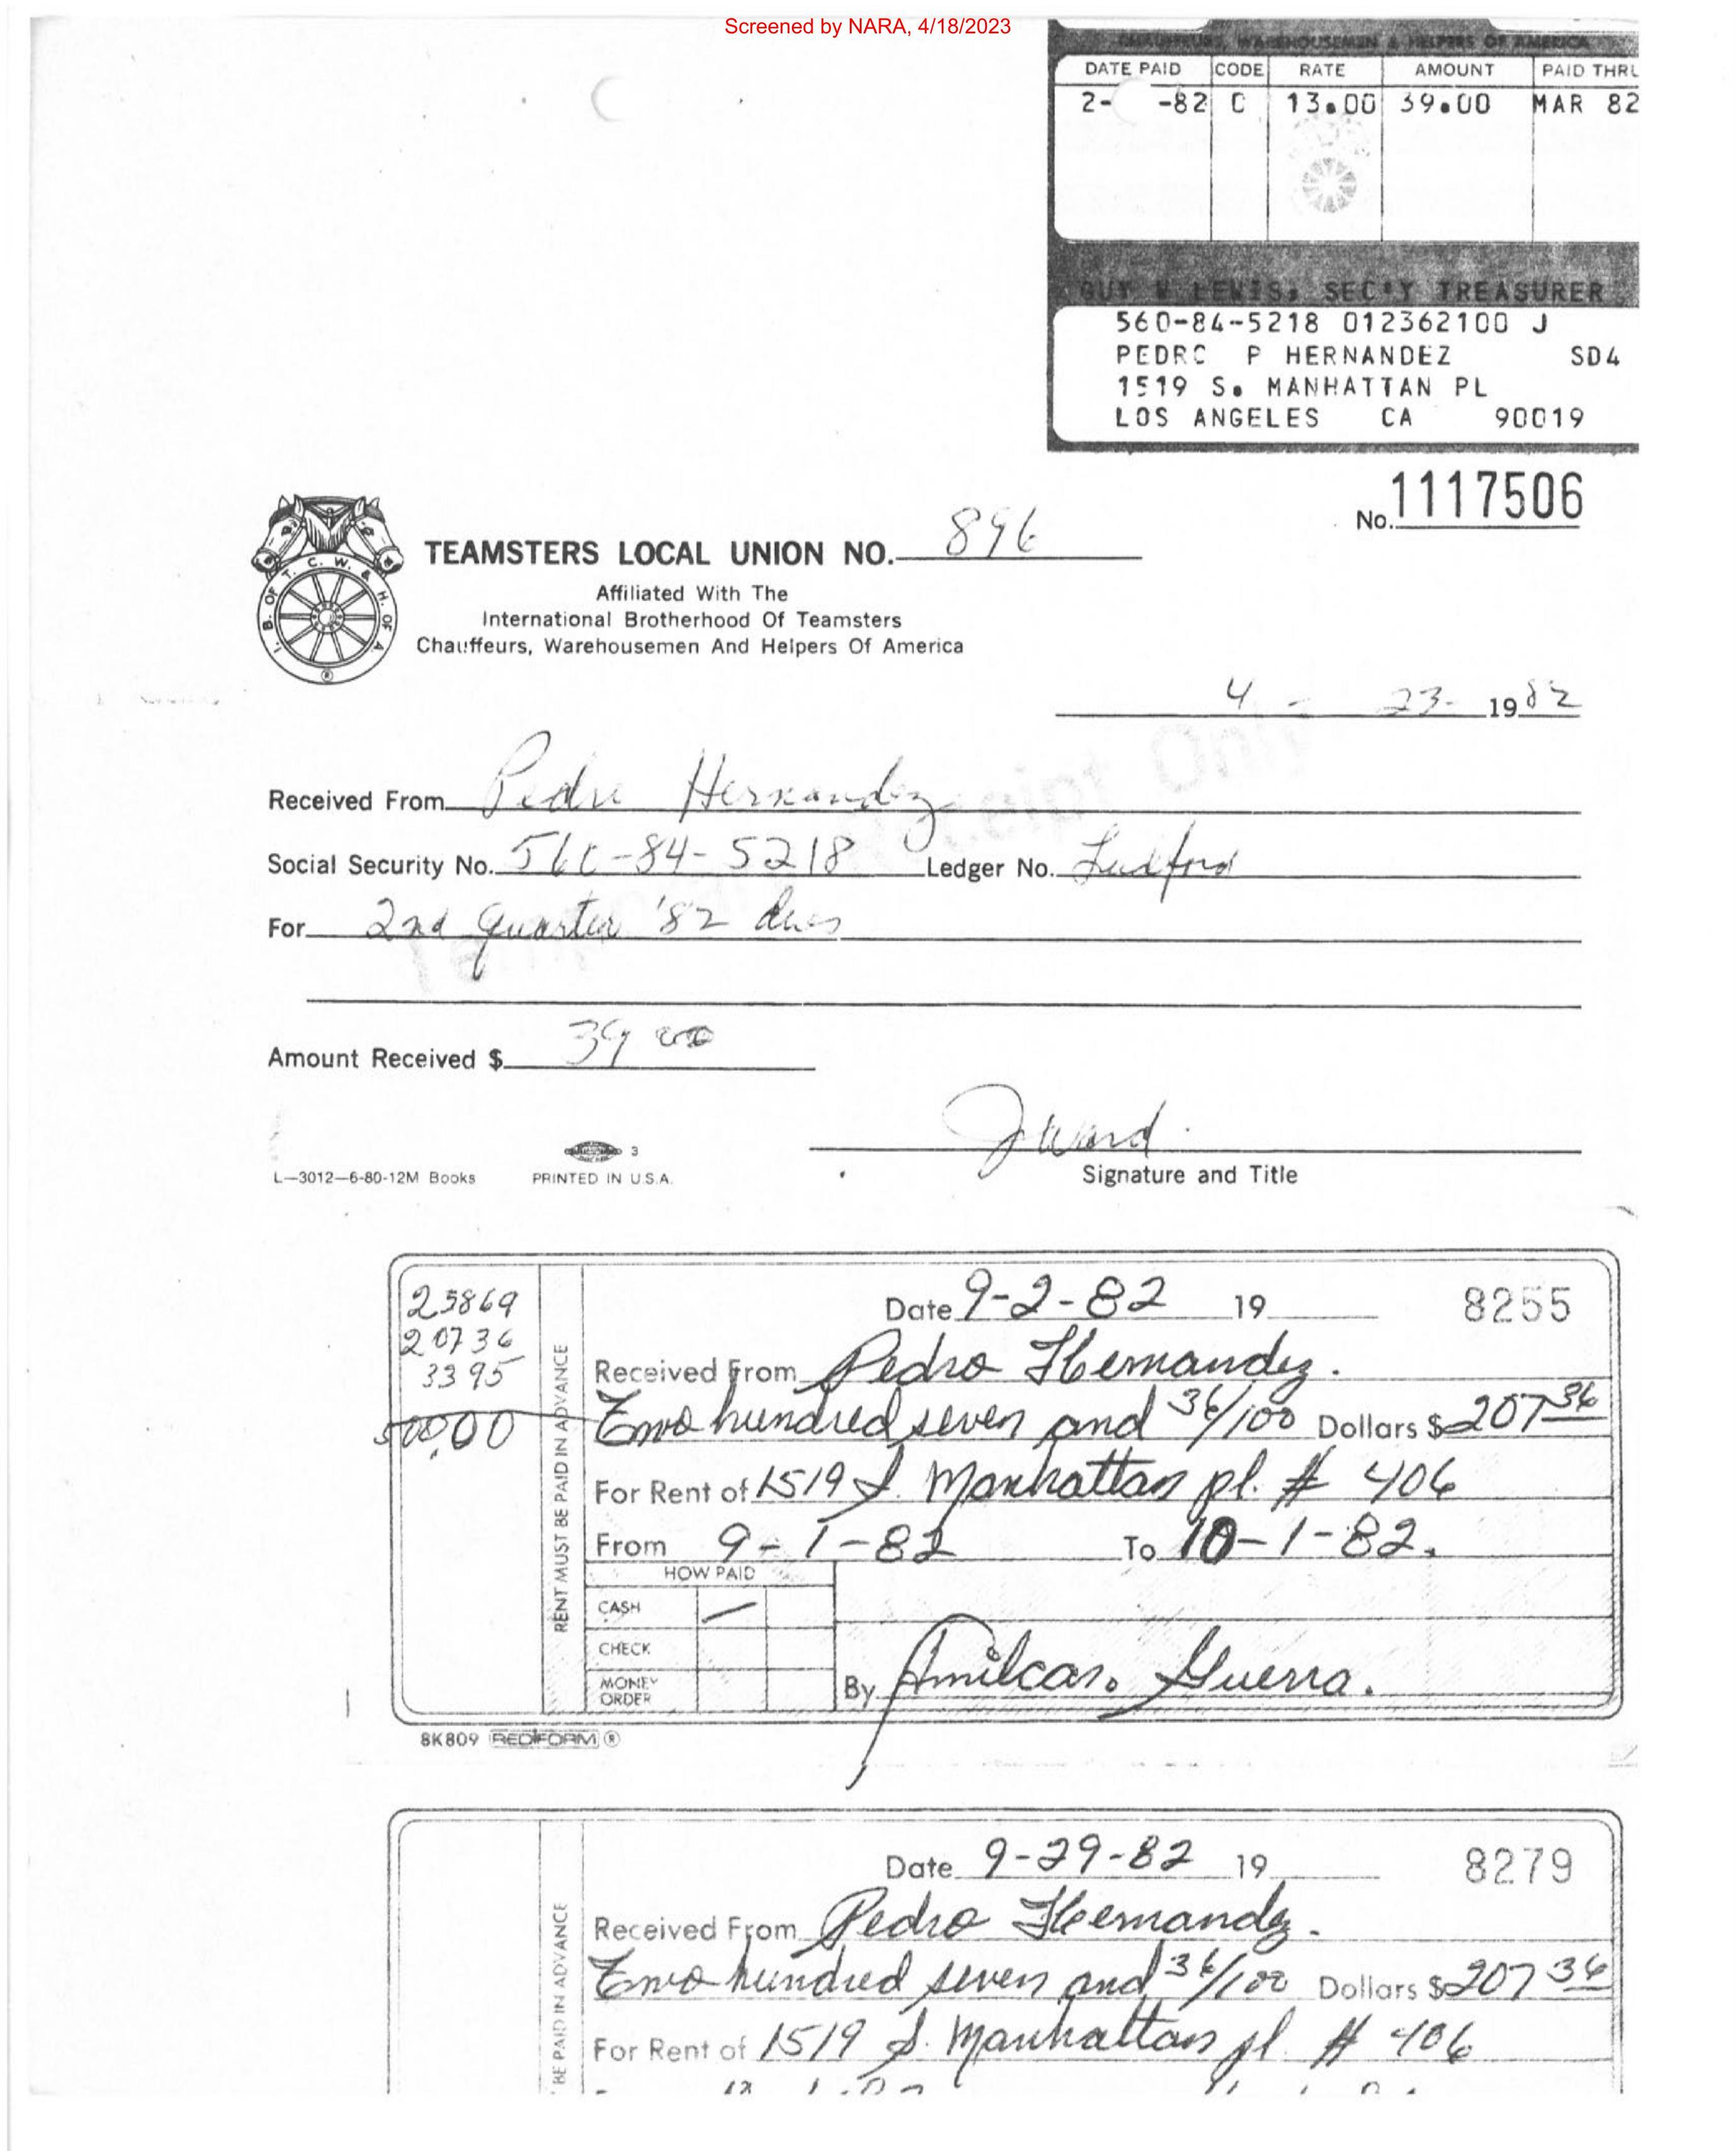 Screened by NARA, 4/18/2023
CHAUFFEURS, WAREHOUSEMEN & HELPERS OF AMERICA
DATE PAID CODE RATE AMOUNT PAID THRU
2- -82 C 13.00 39.00 MAR 82
GUY W LEWIS, SEC'Y TREASURER
560-84-5218 012362100 J
PEDRO P HERNANDEZ SD4
1519 S. MANHATTAN PL
LOS ANGELES CA 90019
No. 1117506
TEAMSTERS LOCAL UNION NO. 896
Affiliated With The
International Brotherhood Of Teamsters
Chauffeurs, Warehousemen And Helpers Of America
I. B. OF T. C. W. & H. OF A.
4 - 23- 1982
Received From Pedro Hernandez
Social Security No. 560-84-5218 Ledger No. Ludford
For 2nd Quarter '82 dues
Receipt Only
Amount Received $ 39 00
J Ward
Signature and Title
3
L-3012-6-80-12M Books PRINTED IN U.S.A.
23869
20736
3395
500,00
RENT MUST BE PAID IN ADVANCE
Date 9-2-82 19 8255
Received From Pedro Hernandez.
Two hundred seven and 36/100 Dollars $207 36
For Rent of 1519 S. Manhattan pl. # 406
From 9-1-82 To 10-1-82.
HOW PAID
CASH
CHECK
MONEY ORDER
By Amilcar. Guerra.
8K809 REDIFORM ®
BE PAID IN ADVANCE
Date 9-29-82 19 8279
Received From Pedro Hernandez.
Two hundred seven and 36/100 Dollars $207 36
For Rent of 1519 S. Manhattan pl. # 406